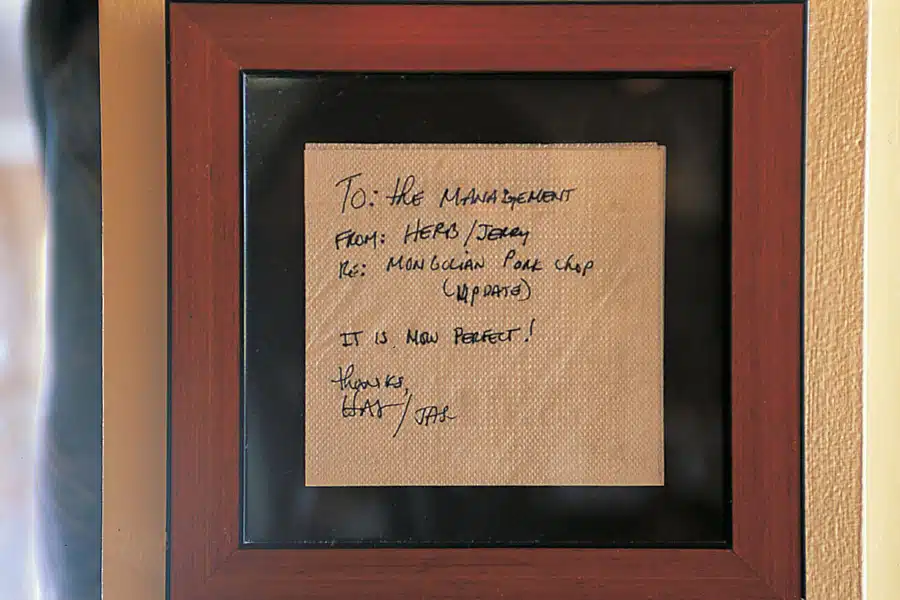 To: the MANAGEMENT
FROM: HERB/JERRY
RE: MONGOLIAN PORK CHOP
(UPDATE)
IT IS NOW PERFECT!
thanks,
/JAS